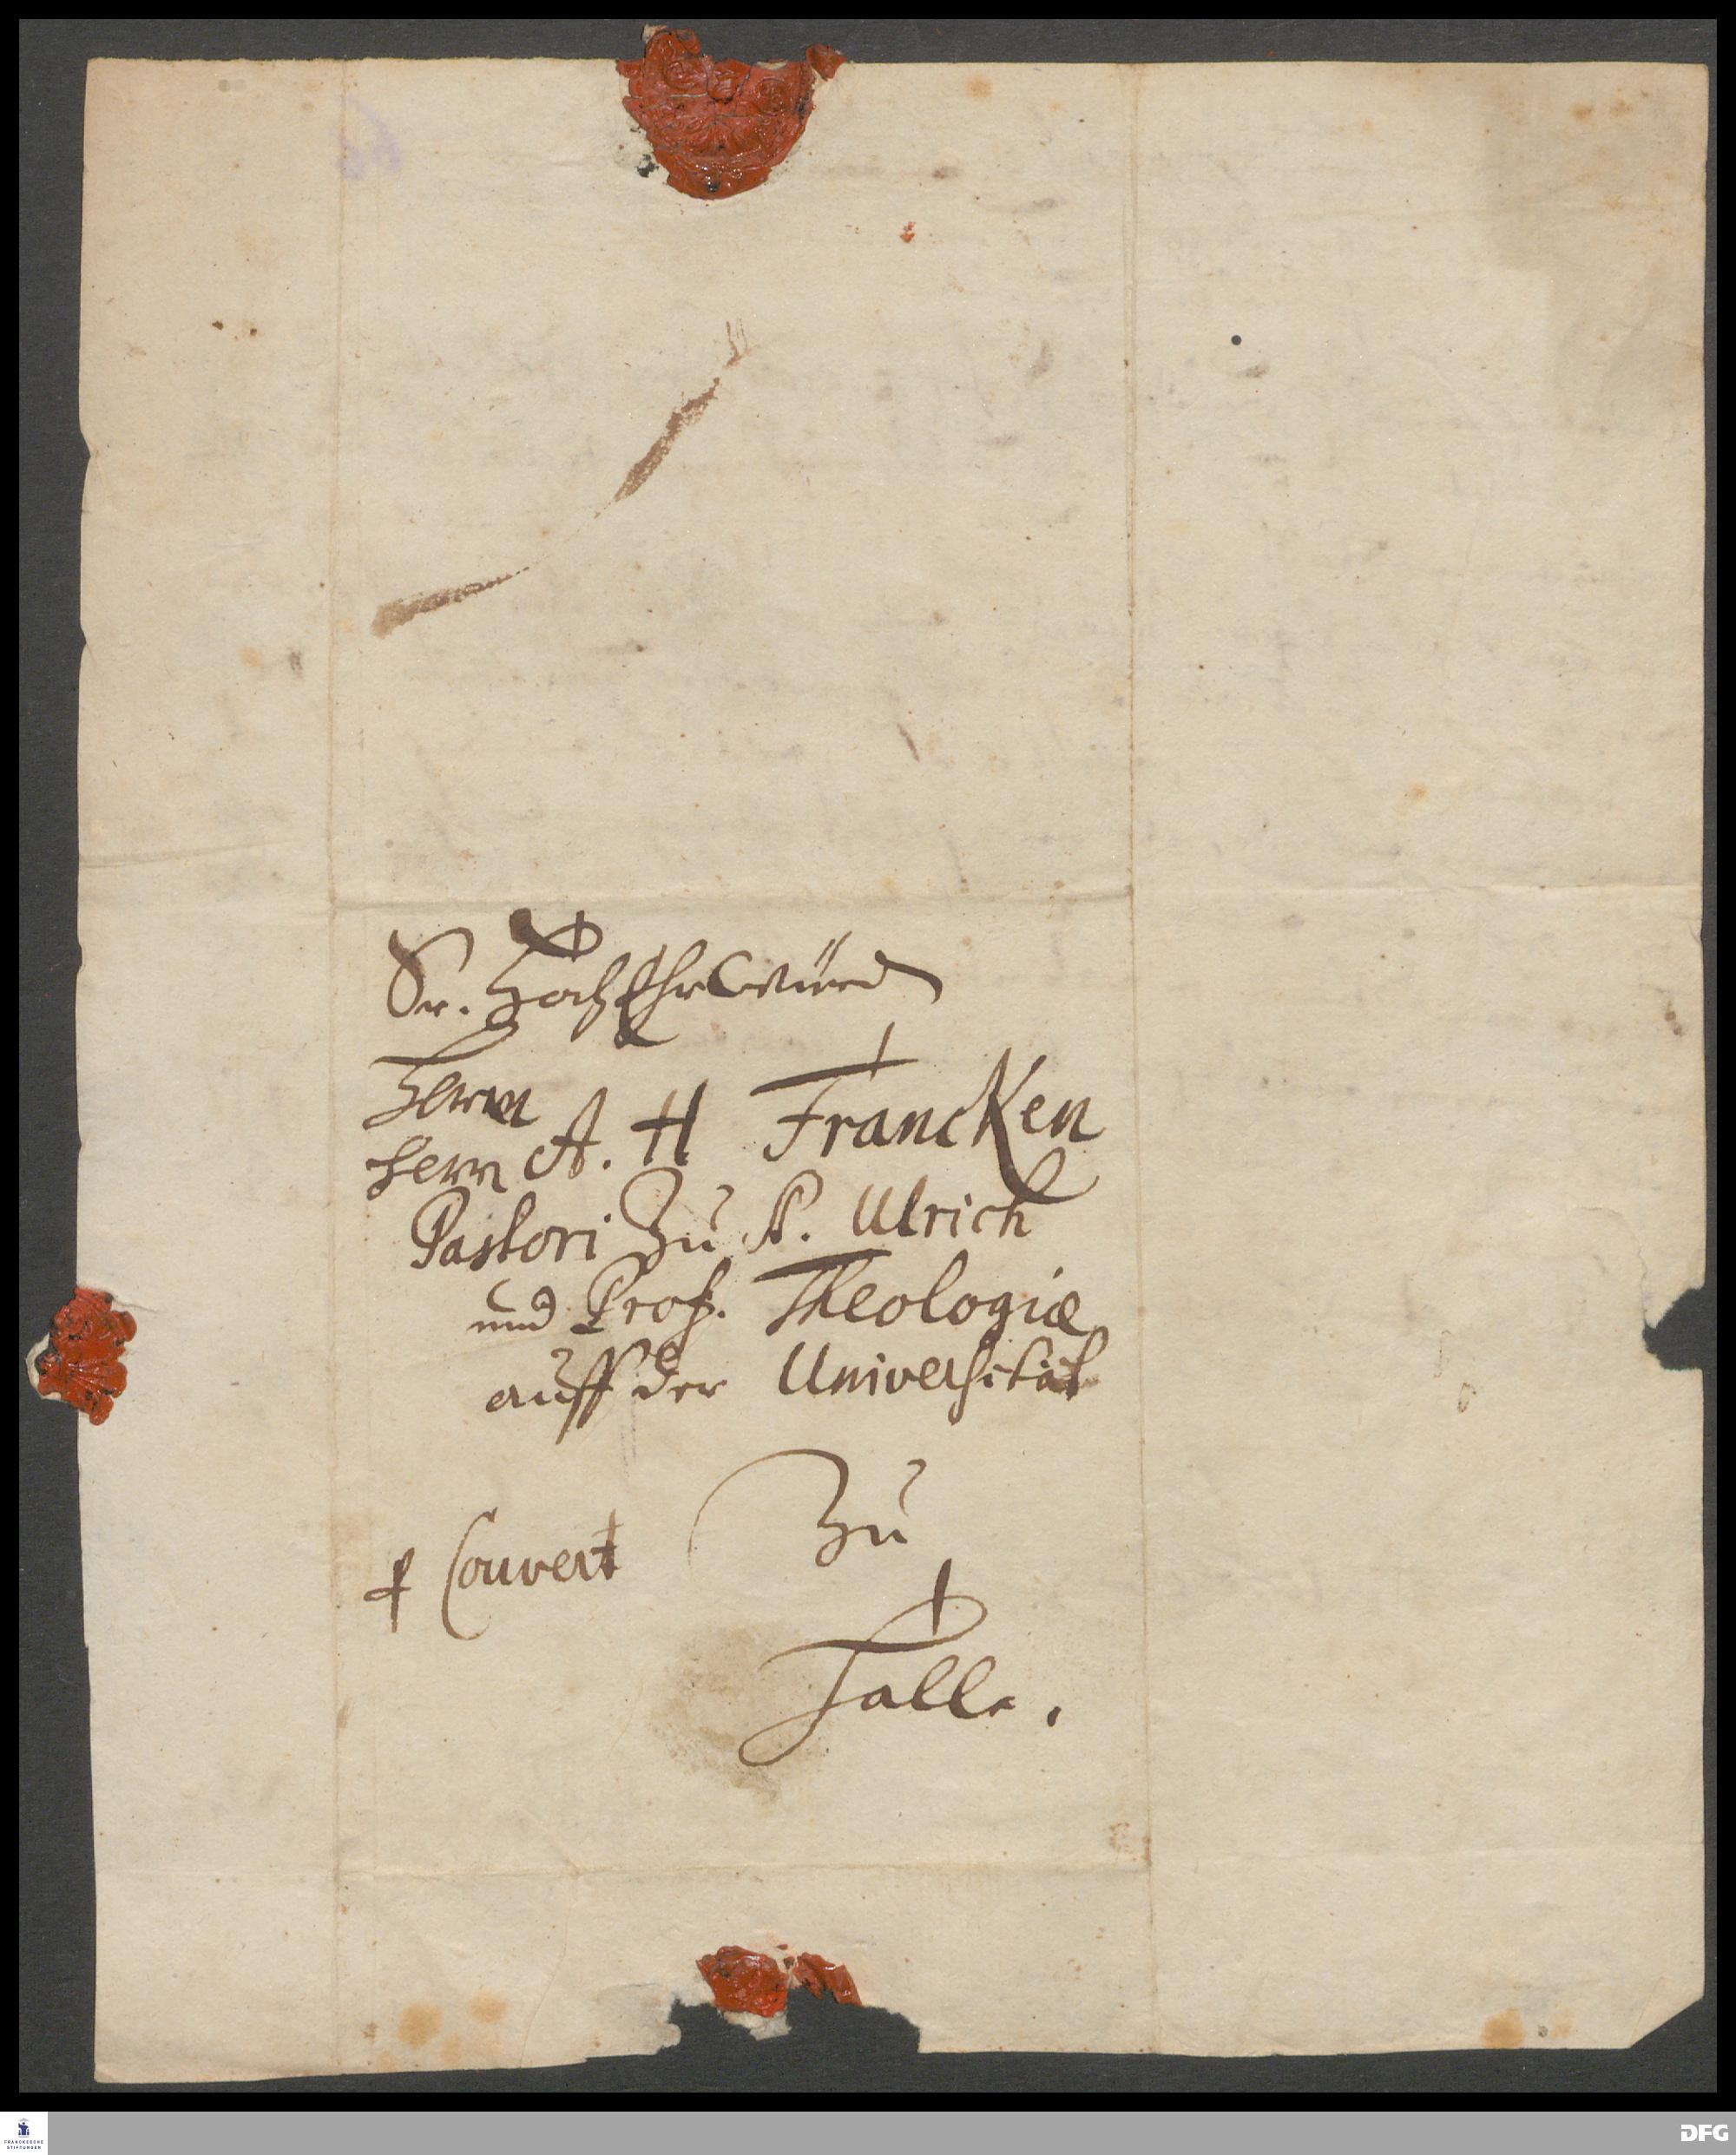 Sr. HochEhrwürd
Herrn
Herrn A. H Francken
Pastori zu S. Ulrich
und Prof. Theologiæ
auff der Universität
Zu
p Couvert
Halle.
FRANCKESCHE
STIFTUNGEN
DFG